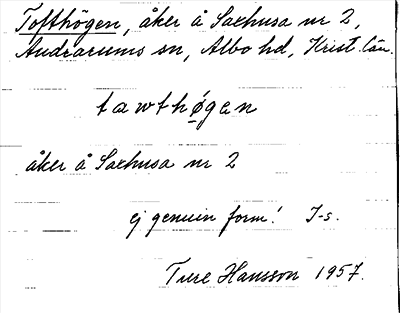 Tofthögen, åker å Saxhusa nr 2,
Andrarums sn, Albo hd, Krist. län.
tawthø̲gen
åker å Saxhusa nr 2
ej genuin form! I-s.
Ture Hansson 1957.